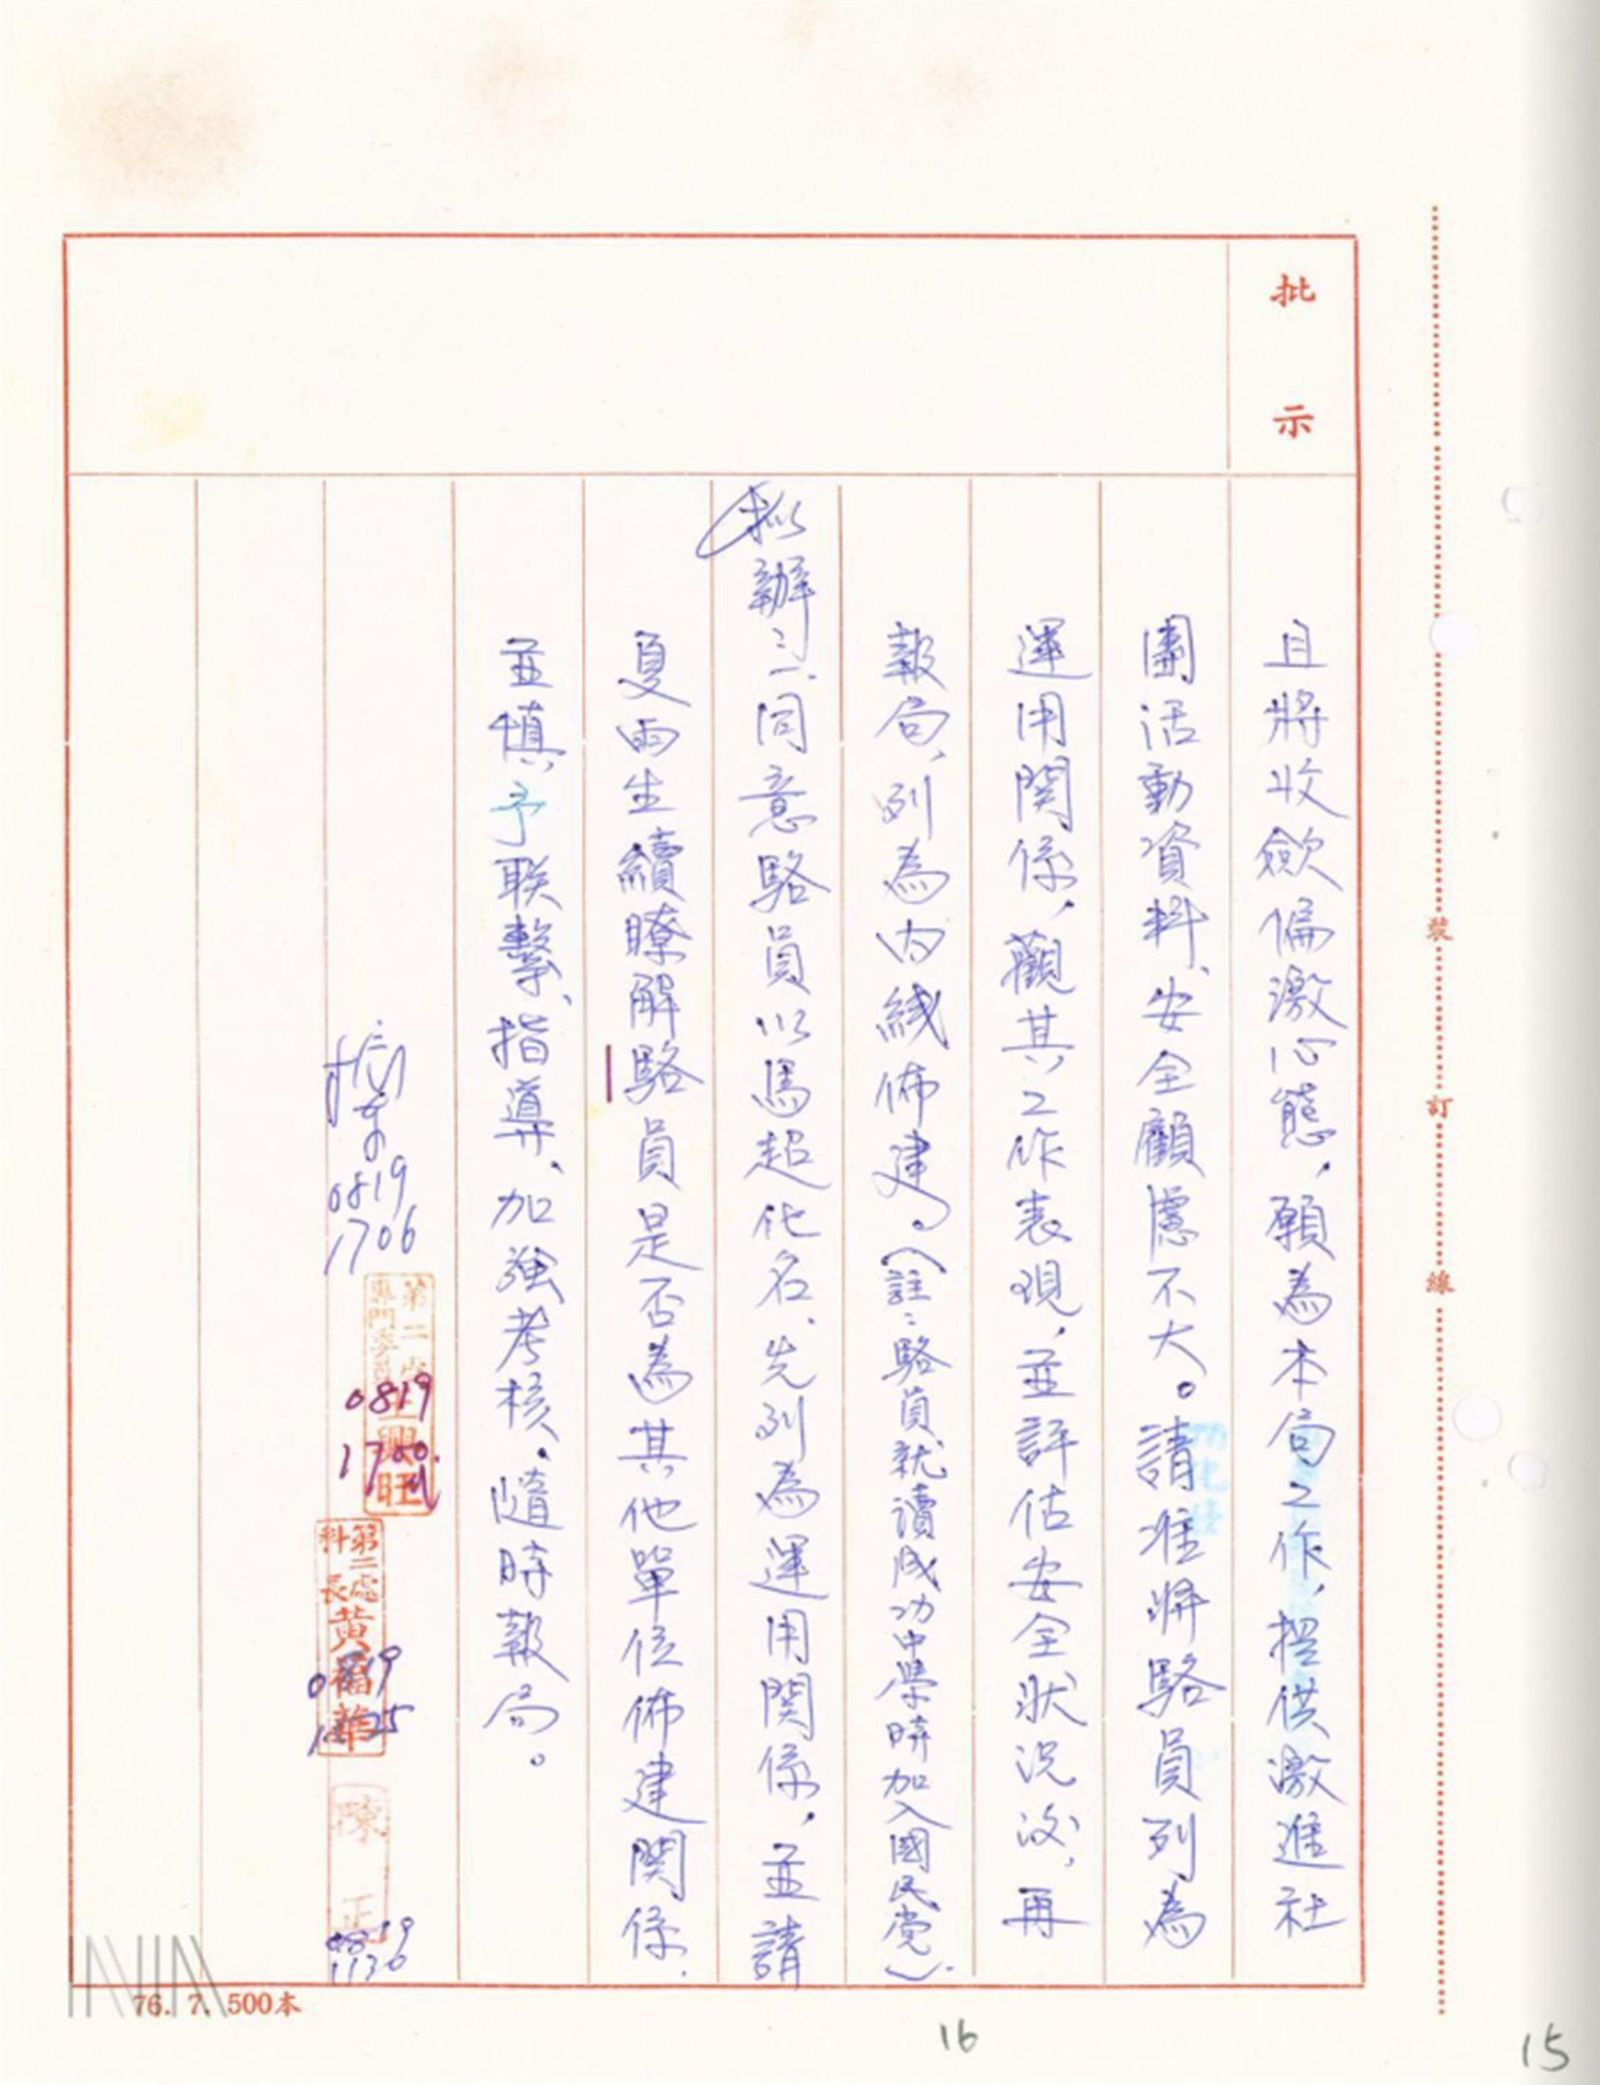 批示
且將收斂偏激心態，願為本局工作，提供激進社
團活動資料、安全顧慮不大。請准將駱員列為
運用関係，觀其工作表現，並評估安全狀況後，再
報局，列為內綫佈建。（註：駱員就讀成功中學時加入國民党）
擬辦：一、同意駱員以馬超化名、先列為運用関係，並請
夏雨生續瞭解駱員是否為其他單位佈建関係、
並慎予联繫、指導、加強考核、隨時報局。
0819
1706
第二處
專門委員
王興旺
0819
1700
第二處
科長
黃福華
0819
陳正
0819
1130
裝訂線
76. 7. 500本
16
15